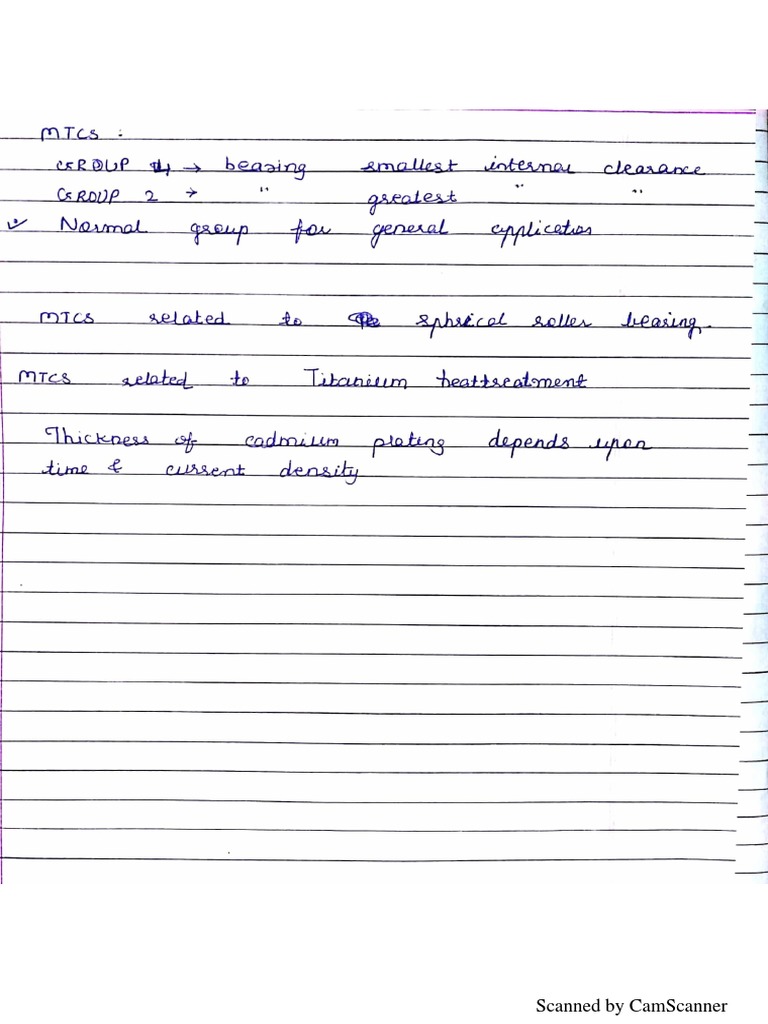 MTCS :
GROUP 4 → bearing smallest internal clearance
GROUP 2 → " greatest " "
✓ Normal group for general application
MTCS related to sphrical roller bearing.
MTCS related to Titanium heattreatment
Thickness of cadmium plating depends upon
time & current density
Scanned by CamScanner